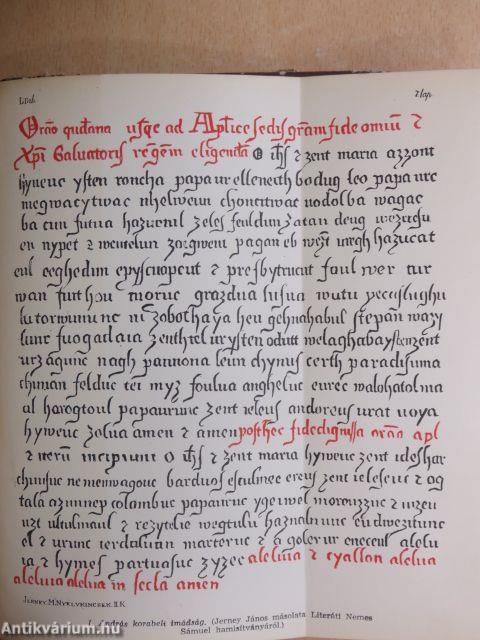 I.Dal.
2 lap.
Orão quedana usqe ad Aplice sedis grãm fide omiu ꝛ
Xpi Salvatoris regem eligenda O ihs ꝛ zent maria azzont
hyveuc ysten roncha papa ur elleneith badug leo papa urc
megwacytivac nhelweum chontitivac uodolba wagac
ba cun futua hazucnil zeles feuldun zatan deug wezerusu
en nypet ꝛ wentelun zorgweni pagan eb wezt uregh hazucat
eul eeghedim epyscuopeut ꝛ presbytrucut foul wer tur
wan furthou moruc grazdua susua wutu yecusfughu
la torwununc nc zobothaya heu gehnahabul stepan wayy
lunc fuogadaia zenthtel ur ysten odutt welaghabaystenzent
urzagunc nagh pannona leun chynus certh paradisuma
chunan felduc ter myz foulua anghelue eurec walohatolma
al harogtoul papauruuc zent ieleus andoreus urat uoya
hyweuc zolua amen ꝛ amen posthec fidedignissa orão apl
ꝛ verũ incipiunt O ihs ꝛ zent maria hyweuc zent ideshar
chuusuc nemenwagouc barduos esculinec ereus zent ieleseuc ꝛ og
tala azunnep colombuc papauruc ygeiwel morouzzuc ꝛ uizeu
uzt ustulmaul ꝛ rezytelic wegtulu haznalnunc eu dwezitunc
el ꝛ urunc ierdaluan marteruc ꝛ a golerur eneceul alelu
ia ꝛ hymes partuasuc zyzec aleluia ꝛ cyallon alelua
aleluia aleluia in secla amen
JERNEY. M. NYELVKINCSEK. II.K
I. András korabeli imádság. (Jerney János másolata Literáti Nemes
Sámuel hamisítványáról.)
Antikvárium.hu